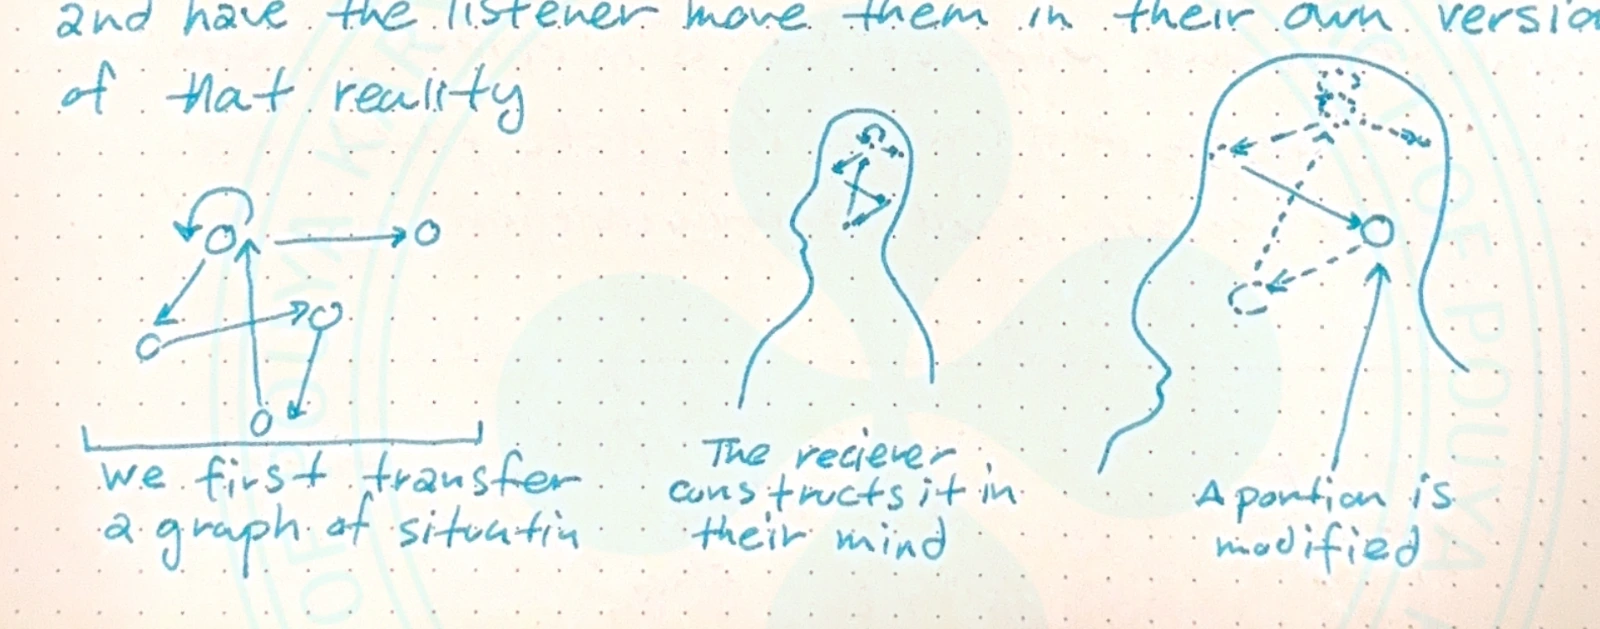 and have the listener move them in their own versio
of that reality
we first transfer
a graph of situatin
The reciever
constructs it in
their mind
A portion is
modified
OF POUYA KAR
OF POUYA